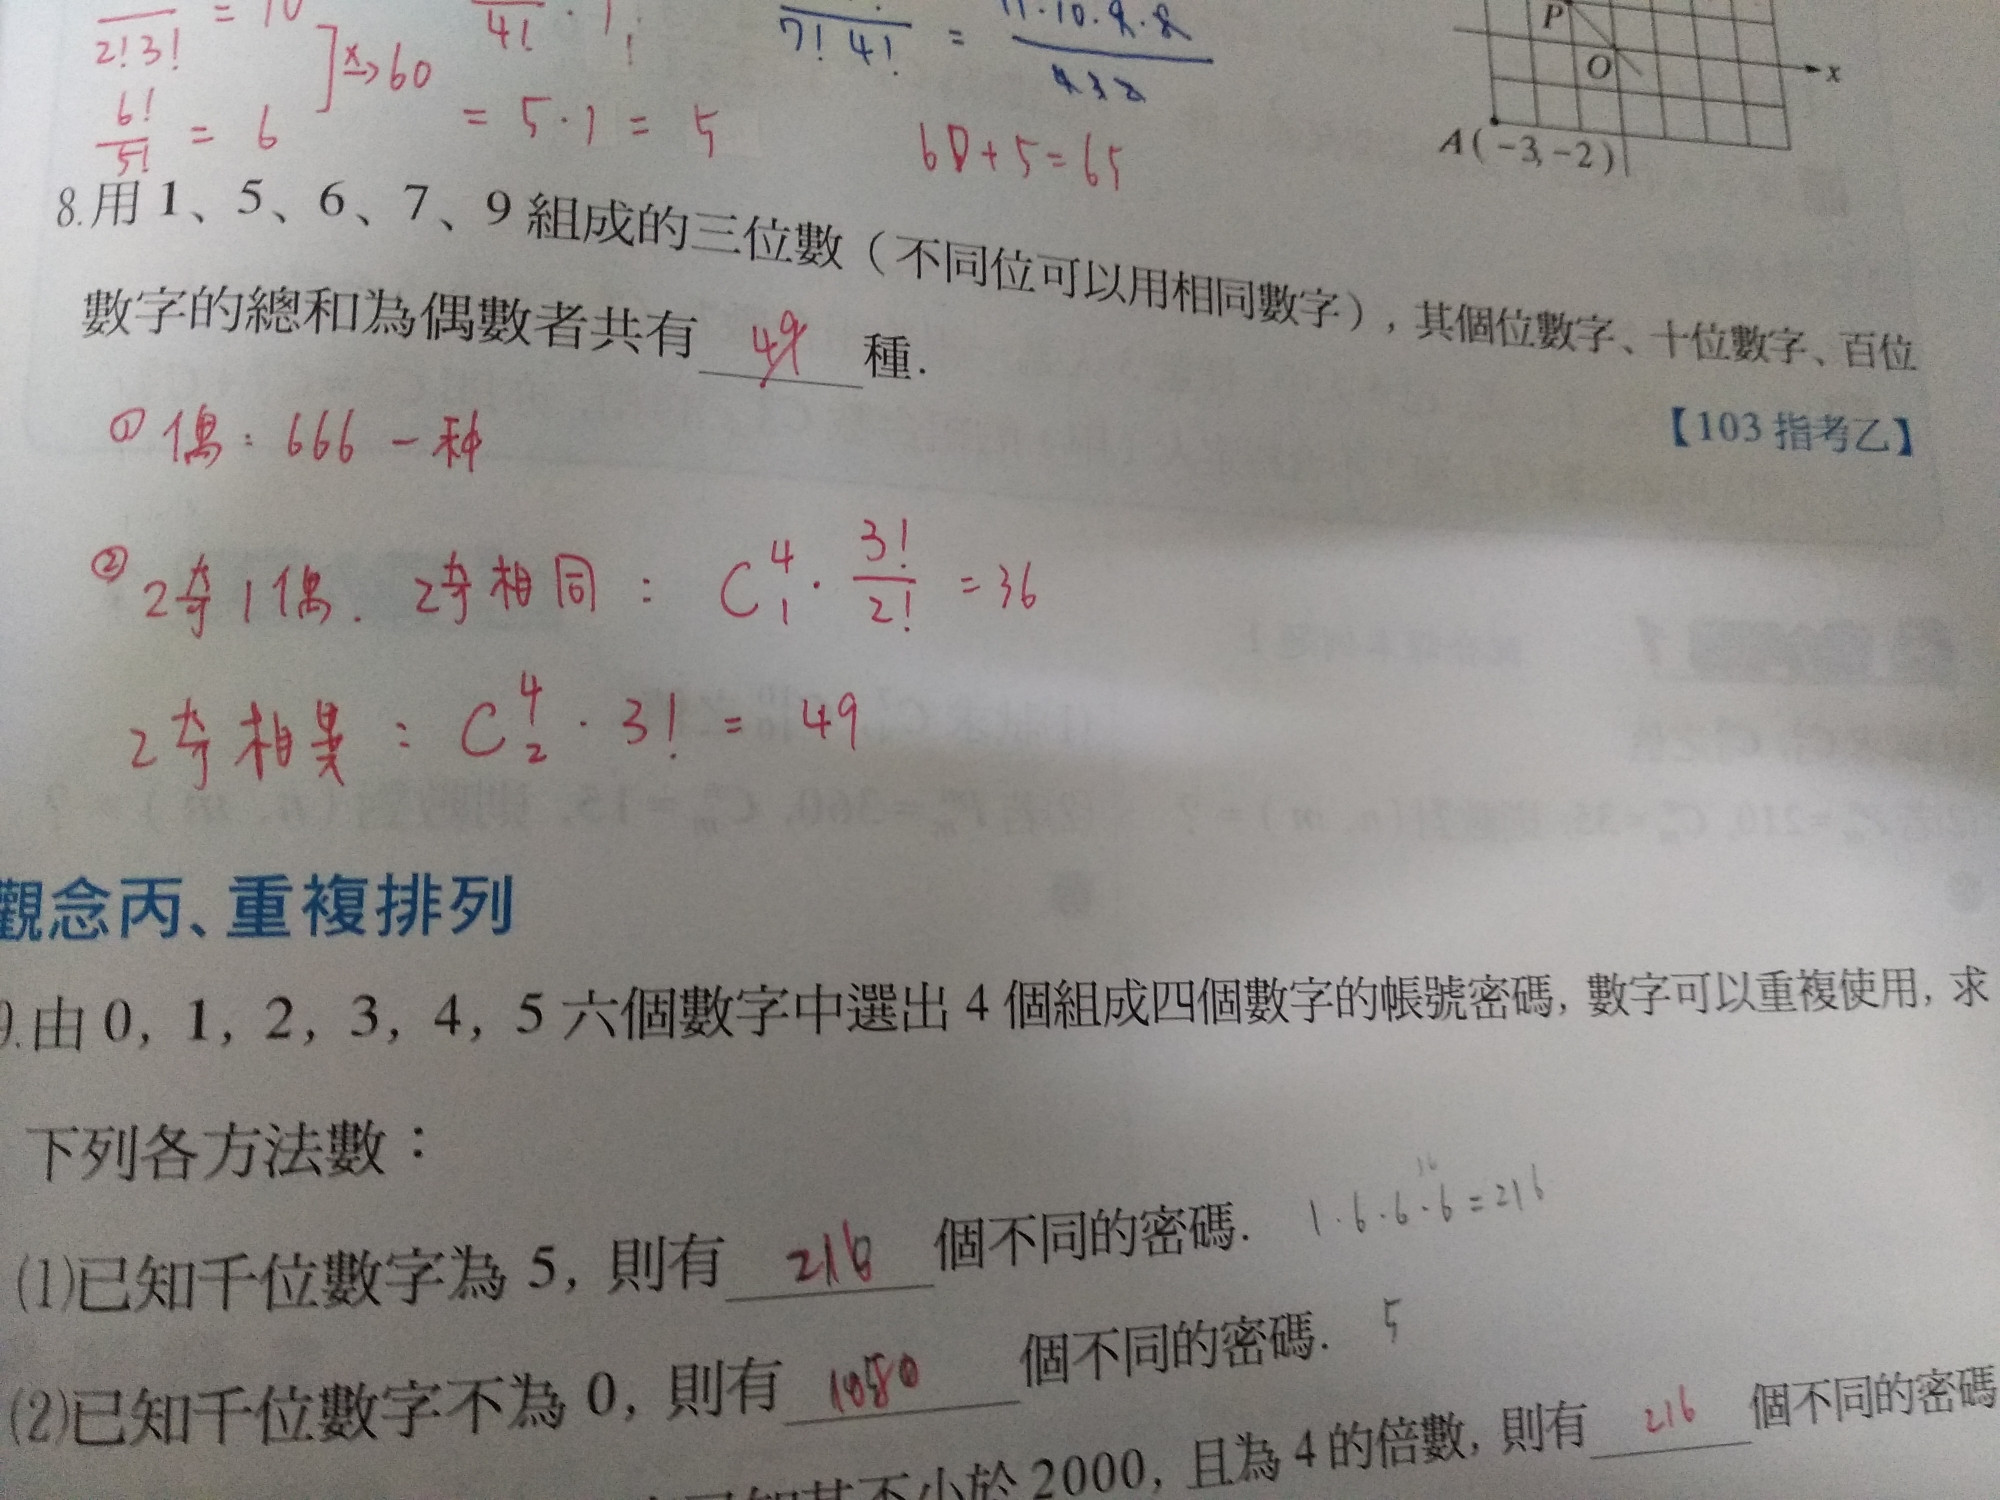 2!3! = 10
4! · 1
7! 4! = 11·10·9·8
4 3 2
P
O
x
×→60
6!
5! = 6
= 5·1 = 5
60+5=65
A(-3,-2)
8.用 1、5、6、7、9 組成的三位數（不同位可以用相同數字），其個位數字、十位數字、百位
數字的總和為偶數者共有 49 種.
【103 指考乙】
① 偶：666 一种
② 2奇1偶. 2奇相同：C⁴₁ · 3!/2! = 36
2奇相異：C⁴₂ · 3! = 49
觀念丙、重複排列
9.由 0, 1, 2, 3, 4, 5 六個數字中選出 4 個組成四個數字的帳號密碼, 數字可以重複使用, 求
下列各方法數：
(1)已知千位數字為 5, 則有 216 個不同的密碼. 1·6·6·6=216
36
(2)已知千位數字不為 0, 則有 1080 個不同的密碼. 5
不小於 2000, 且為 4 的倍數, 則有 216 個不同的密碼